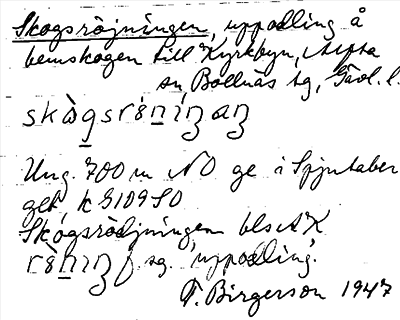 Skogsröjningen, uppodling å
hemskogen till Kyrkbyn, Arfta
sn, Bollnäs tg, Gävl. l.
skògsrönıŋaŋ
Ung. 700 m NO ge i Spjutaber
get, k G109 SO
Skogsrödjningen bl
röniŋ f. sg. 'uppodling'.
F. Birgerson 1947